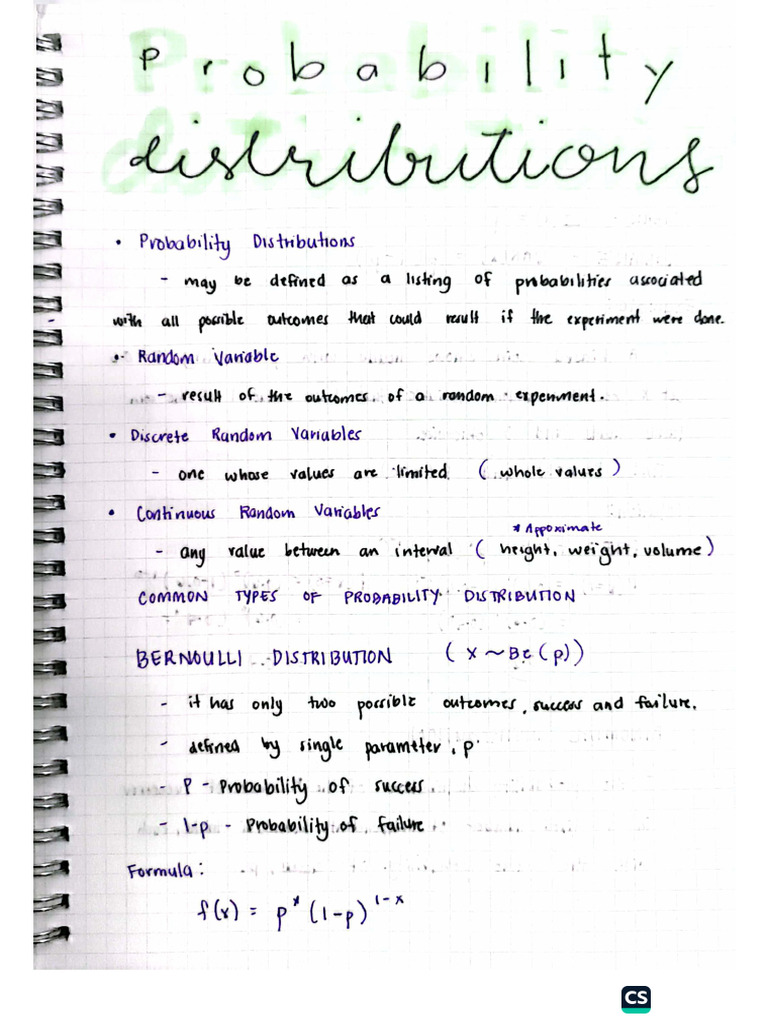 Probability
distributions
• Probability Distributions
- may be defined as a listing of probabilities associated
with all possible outcomes that could result if the experiment were done.
• Random Variable
- result of the outcomes of a random experiment.
• Discrete Random Variables
- one whose values are limited (whole values)
• Continuous Random Variables
* Appoximate
- any value between an interval (height, weight, volume)
COMMON TYPES OF PROBABILITY DISTRIBUTION
BERNOULLI DISTRIBUTION (X ~ Be(p))
- it has only two possible outcomes, success and failure.
- defined by single parameter, p
- P - Probability of success
- 1-p - Probability of failure
Formula:
f(x) = pˣ (1-p)¹⁻ˣ
CS